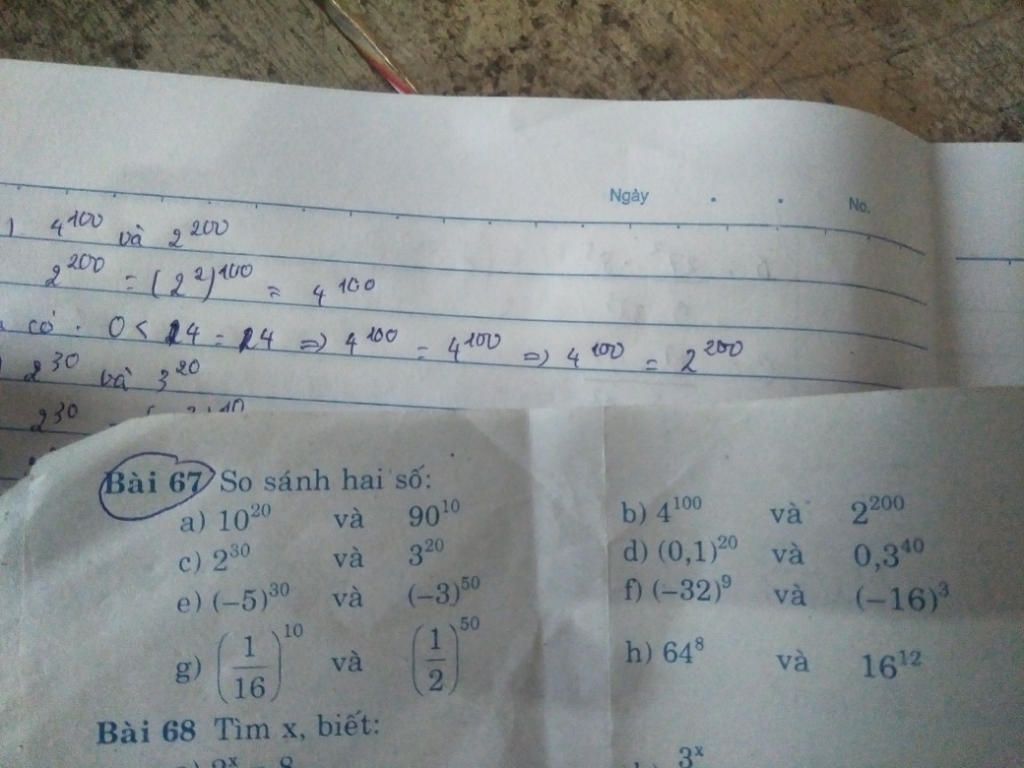 Ngày No.
4¹⁰⁰ và 2²⁰⁰
2²⁰⁰ = (2²)¹⁰⁰ = 4¹⁰⁰
có. 0 < 4 = 4 => 4¹⁰⁰ = 4¹⁰⁰ => 4¹⁰⁰ = 2²⁰⁰
2³⁰ và 3²⁰
2³⁰
Bài 67 So sánh hai số:
a) 10²⁰ và 90¹⁰ b) 4¹⁰⁰ và 2²⁰⁰
c) 2³⁰ và 3²⁰ d) (0,1)²⁰ và 0,3⁴⁰
e) (−5)³⁰ và (−3)⁵⁰ f) (−32)⁹ và (−16)³
g) (1/16)¹⁰ và (1/2)⁵⁰ h) 64⁸ và 16¹²
Bài 68 Tìm x, biết:
3ˣ